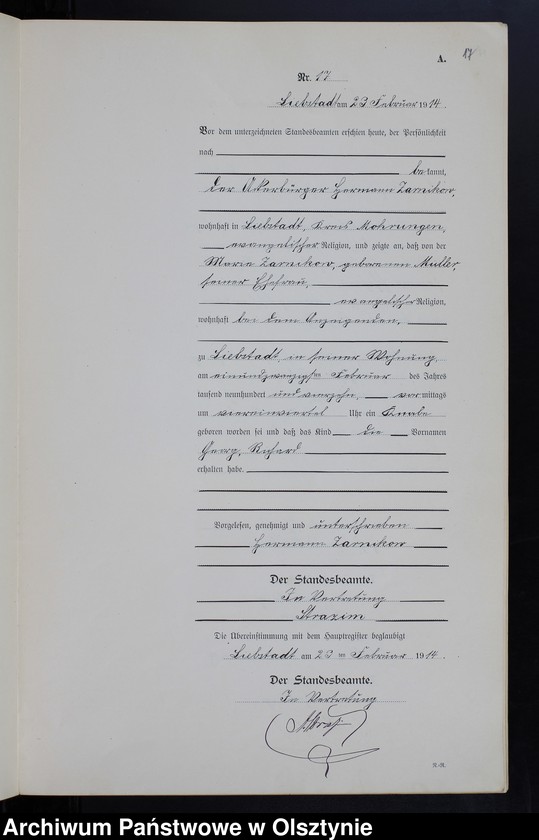 A.
17
Nr. 17
Liebstadt am 23 Februar 1914.
Vor dem unterzeichneten Standesbeamten erschien heute, der Persönlichkeit
nach
bekannt,
der Ackerbürger Hermann Zarnikow,
wohnhaft in Liebstadt, Kreis Mohrungen,
evangelischer Religion, und zeigte an, daß von der
Marie Zarnikow, geborenen Müller,
seiner Ehefrau,
evangelischer Religion,
wohnhaft bei dem Anzeigenden,
zu Liebstadt, in seiner Wohnung,
am einundzwanzigsten Februar des Jahres
tausend neunhundert und vierzehn, vormittags
um viereinviertel Uhr ein Knabe
geboren worden sei und daß das Kind die Vornamen
Georg, Richard
erhalten habe.
Vorgelesen, genehmigt und unterschrieben
Hermann Zarnikow
Der Standesbeamte.
In Vertretung
Die Übereinstimmung mit dem Hauptregister beglaubigt
Liebstadt am 23 ten Februar 1914.
Der Standesbeamte.
In Vertretung
Archiwum Państwowe w Olsztynie